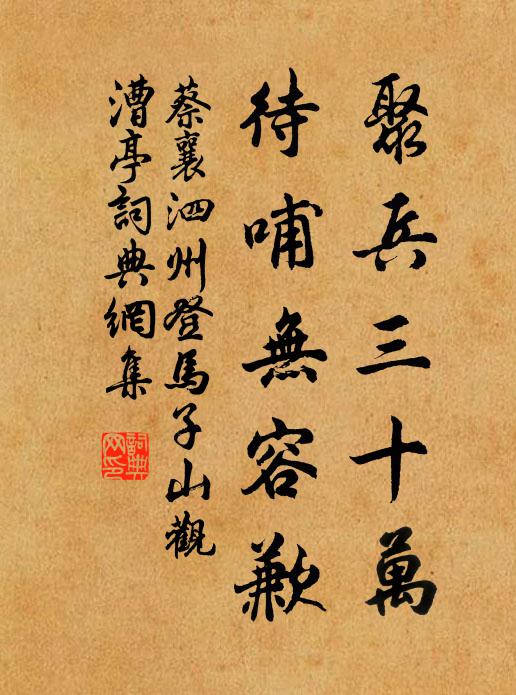 聚兵三十萬
待哺無容歉
蔡襄泗州登馬子山觀
漕亭詞典網集
詞典網印